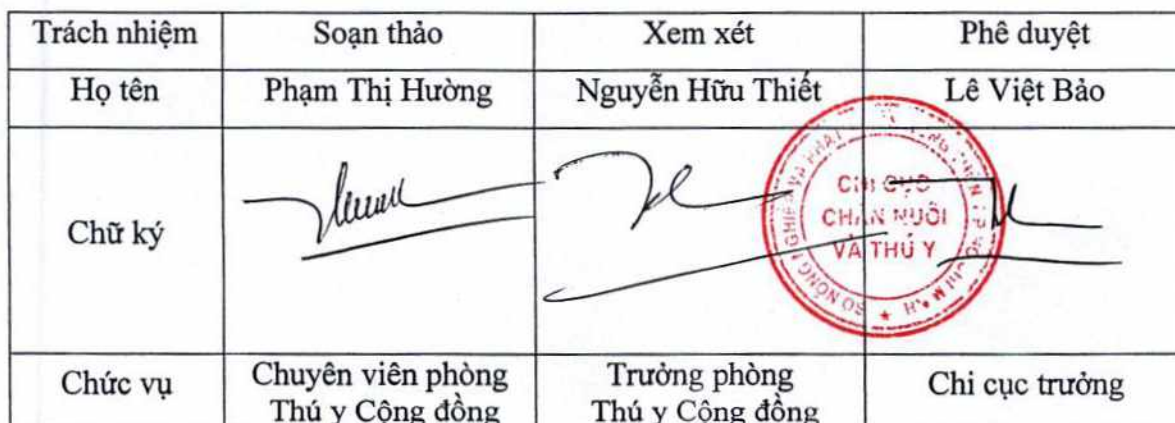 Trách nhiệm Soạn thảo Xem xét Phê duyệt
Họ tên Phạm Thị Hường Nguyễn Hữu Thiết Lê Việt Bảo
Chữ ký
CHI CỤC
CHĂN NUÔI
VÀ THÚ Y
Chức vụ Chuyên viên phòng Trưởng phòng Chi cục trưởng
Thú y Cộng đồng Thú y Cộng đồng